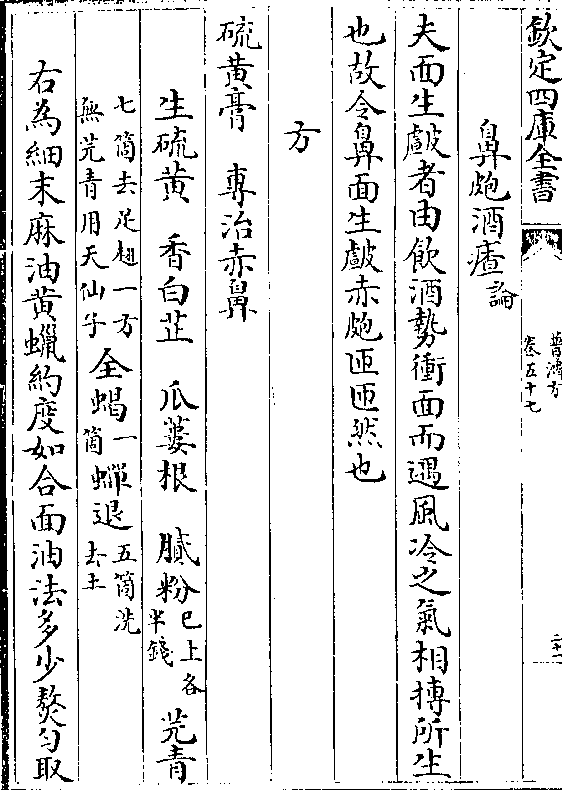 欽定四庫全書
普濟方
卷五十七
二十一
鼻皰酒齄論
夫面生齄者由飲酒勢衝面而遇風冷之氣相搏所生
也故令鼻面生齄赤皰匝匝然也
方
硫黄膏　專治赤鼻
生硫黄　香白芷　瓜蔞根　膩粉已上各半錢　芫青
七箇去足翅一方無芫青用天仙子　全蝎一箇　蟬退五箇洗去土
右為細末麻油黄蠟約度如合面油法多少熬匀取